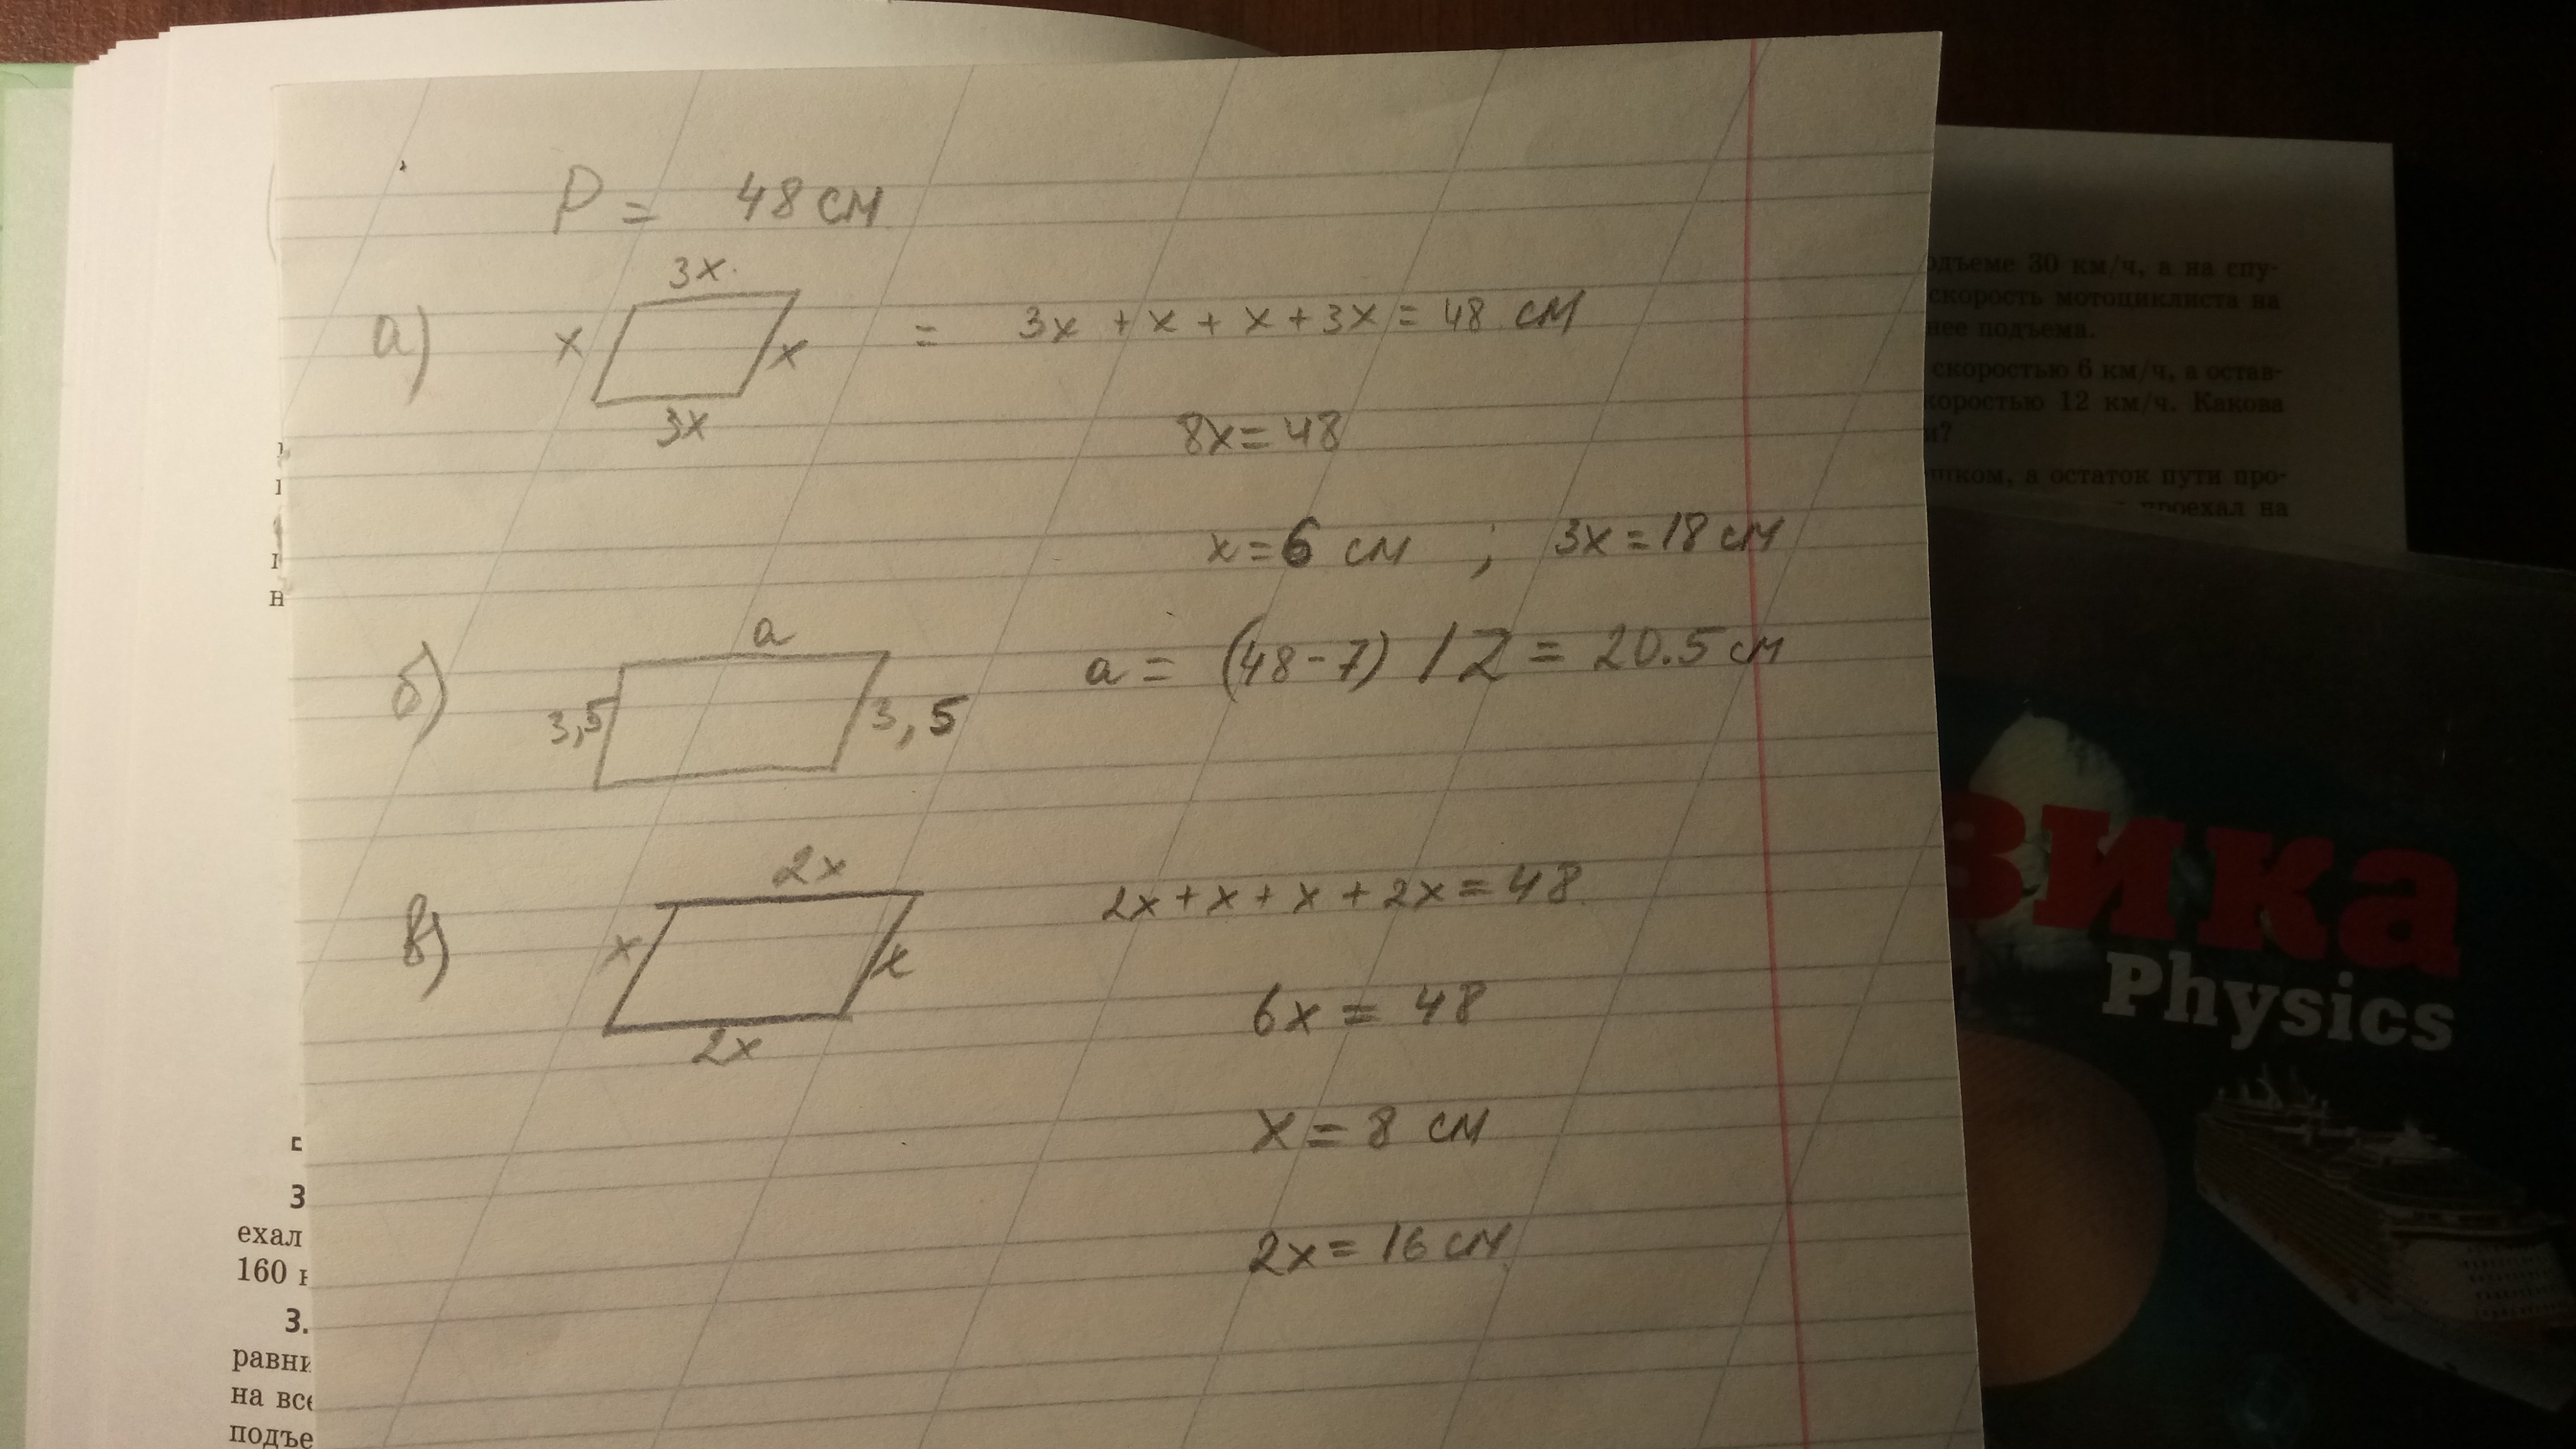 P = 48 см
а)
3x
x
x
3x
= 3x + x + x + 3x = 48 см
8x = 48
x = 6 см ; 3x = 18 см
б)
a
3,5
3,5
a = (48 - 7) / 2 = 20.5 см
в)
2x
x
x
2x
2x + x + x + 2x = 48
6x = 48
x = 8 см
2x = 16 см
н
3
ехал
160
3.
равни
на все
подъе
одъеме 30 км/ч, а на спу-
скорость мотоциклиста на
нее подъема.
скоростью 6 км/ч, а остав-
коростью 12 км/ч. Какова
?
шком, а остаток пути про-
проехал на
зика
Physics